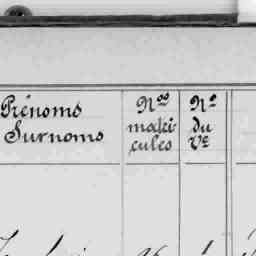 Prénoms
Surnoms
Nos
matri
cules
No
du
Ve